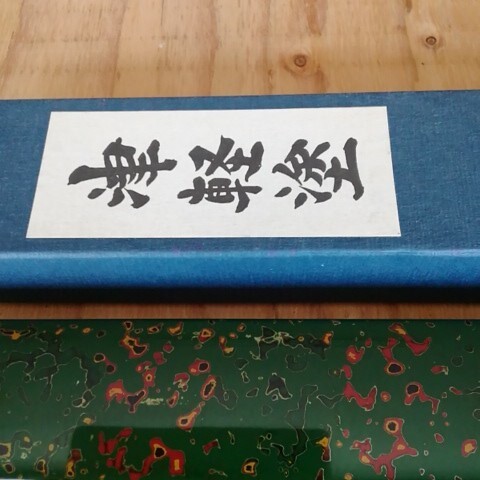 津軽塗